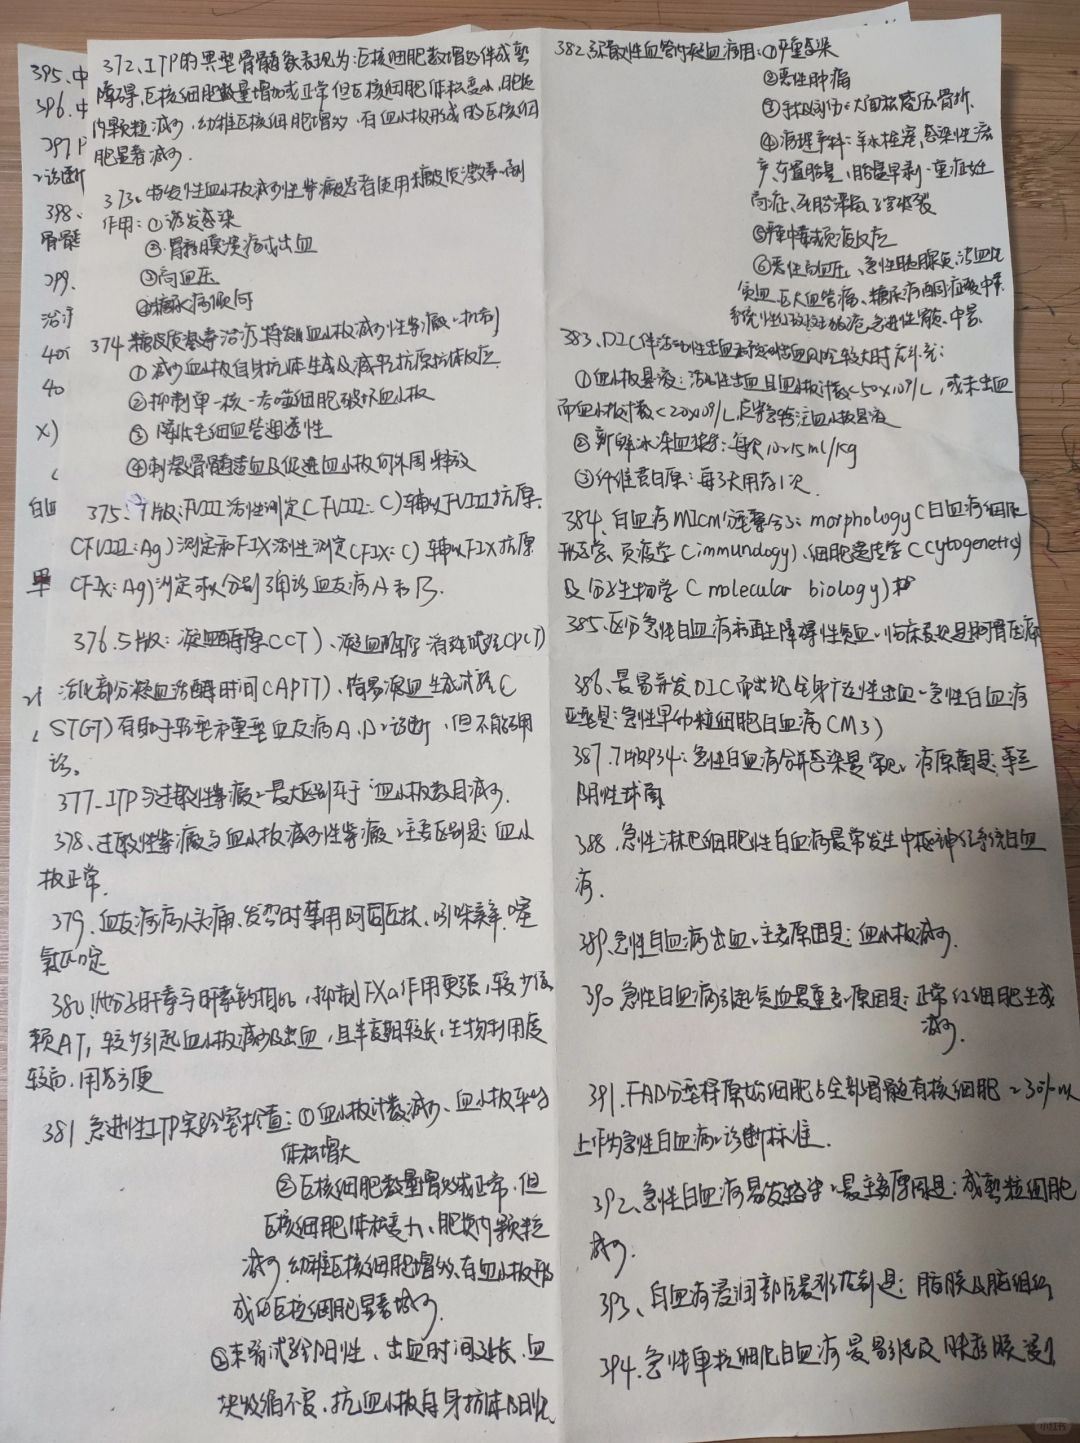 395、中
396、中
397、P
诊断
398、
骨髓
399、
治疗
40
40
X)
白血
372、ITP的典型骨髓象表现为:巨核细胞数增多伴成熟
障碍,巨核细胞数量增加或正常但巨核细胞体积变小,胞浆
内颗粒减少,幼稚巨核细胞增多,有血小板形成的巨核细
胞显著减少.
373、特发性血小板减少性紫癜患者使用糖皮质激素副
作用:①诱发感染
②胃黏膜溃疡或出血
③高血压
④糖尿病
374糖皮质激素治疗特发血小板减少性紫癜机制
①减少血小板自身抗体生成及减轻抗原抗体反应
②抑制单核-吞噬细胞破坏血小板
③降低毛细血管通透性
④刺激骨髓造血及促进血小板向外周释放
375、7版:FVIII活性测定(FVIII:C)辅以FVIII抗原
(FVIII:Ag)测定和FIX活性测定(FIX:C)辅以FIX抗原
(FIX:Ag)测定可以分别确诊血友病A和B.
376.5版:凝血酶原(CT)、凝血酶原消耗试验(PCT)
活化部分凝血活酶时间(APTT)、简易凝血生成试验(
STGT)有助于轻型和重型血友病A、B诊断,但不能确
诊。
377、ITP与过敏性紫癜最大区别在于血小板数目减少.
378、过敏性紫癜与血小板减少性紫癜主要区别是:血小
板正常.
379、血友病病人头痛、发热时禁用阿司匹林、吲哚美辛、噻
氯匹啶
380低分子肝素与肝素钠相比,抑制FXa作用更强,较少依
赖AT,较少引起血小板减少及出血,且半衰期较长,生物利用度
较高,用药方便
381、急进性ITP实验室检查:①血小板计数减少、血小板平均
体积增大
②巨核细胞数量增多或正常,但
巨核细胞体积变大、胞浆内颗粒
减少,幼稚巨核细胞增多,有血小板形
成的巨核细胞显著减少.
③束臂试验阳性、出血时间延长、血
块收缩不良、抗血小板自身抗体阳性
382、弥散性血管内凝血病因:①严重感染
②恶性肿瘤
③手术创伤:大面积烧伤、骨折
④病理产科:羊水栓塞、感染性流
产、前置胎盘、胎盘早剥、重症妊
高症、死胎滞留、子宫破裂
⑤严重中毒或免疫反应
⑥恶性高血压、急性胰腺炎、溶血性
贫血、巨大血管瘤、糖尿病酮症酸中毒、
系统性红斑狼疮、急进性肾炎、中暑
383、DIC伴活动性出血和预测出血风险较大时应补充:
①血小板悬液:活动性出血且血小板计数<50×10⁹/L,或未出血
而血小板计数<20×10⁹/L,应紧急输注血小板悬液
②新鲜冰冻血浆:每次10-15ml/kg
③纤维蛋白原:每3天用药1次.
384、白血病MICM分型整合了:morphology(白血病细胞
形态学、免疫学(immunology)、细胞遗传学(cytogenetics)
及分子生物学(molecular biology)
385、区分急性白血病和再生障碍性贫血临床表现是胸骨压痛
386、最易并发DIC而出现全身广泛性出血急性白血病
亚型是:急性早幼粒细胞白血病(M3)
387、7版P34:急性白血病合并感染最常见病原菌是:革兰
阴性球菌
388、急性淋巴细胞性白血病最常发生中枢神经系统白血
病.
389、急性白血病出血主要原因是:血小板减少.
390急性白血病引起贫血最重要原因是:正常红细胞生成
减少.
391.FAB分型将原始细胞占全部骨髓有核细胞≥30%以
上作为急性白血病诊断标准.
392、急性白血病易发感染最主要原因是:成熟粒细胞
减少.
393、白血病浸润部位最多是:脑膜及脑组织
394、急性单核细胞白血病最易引及